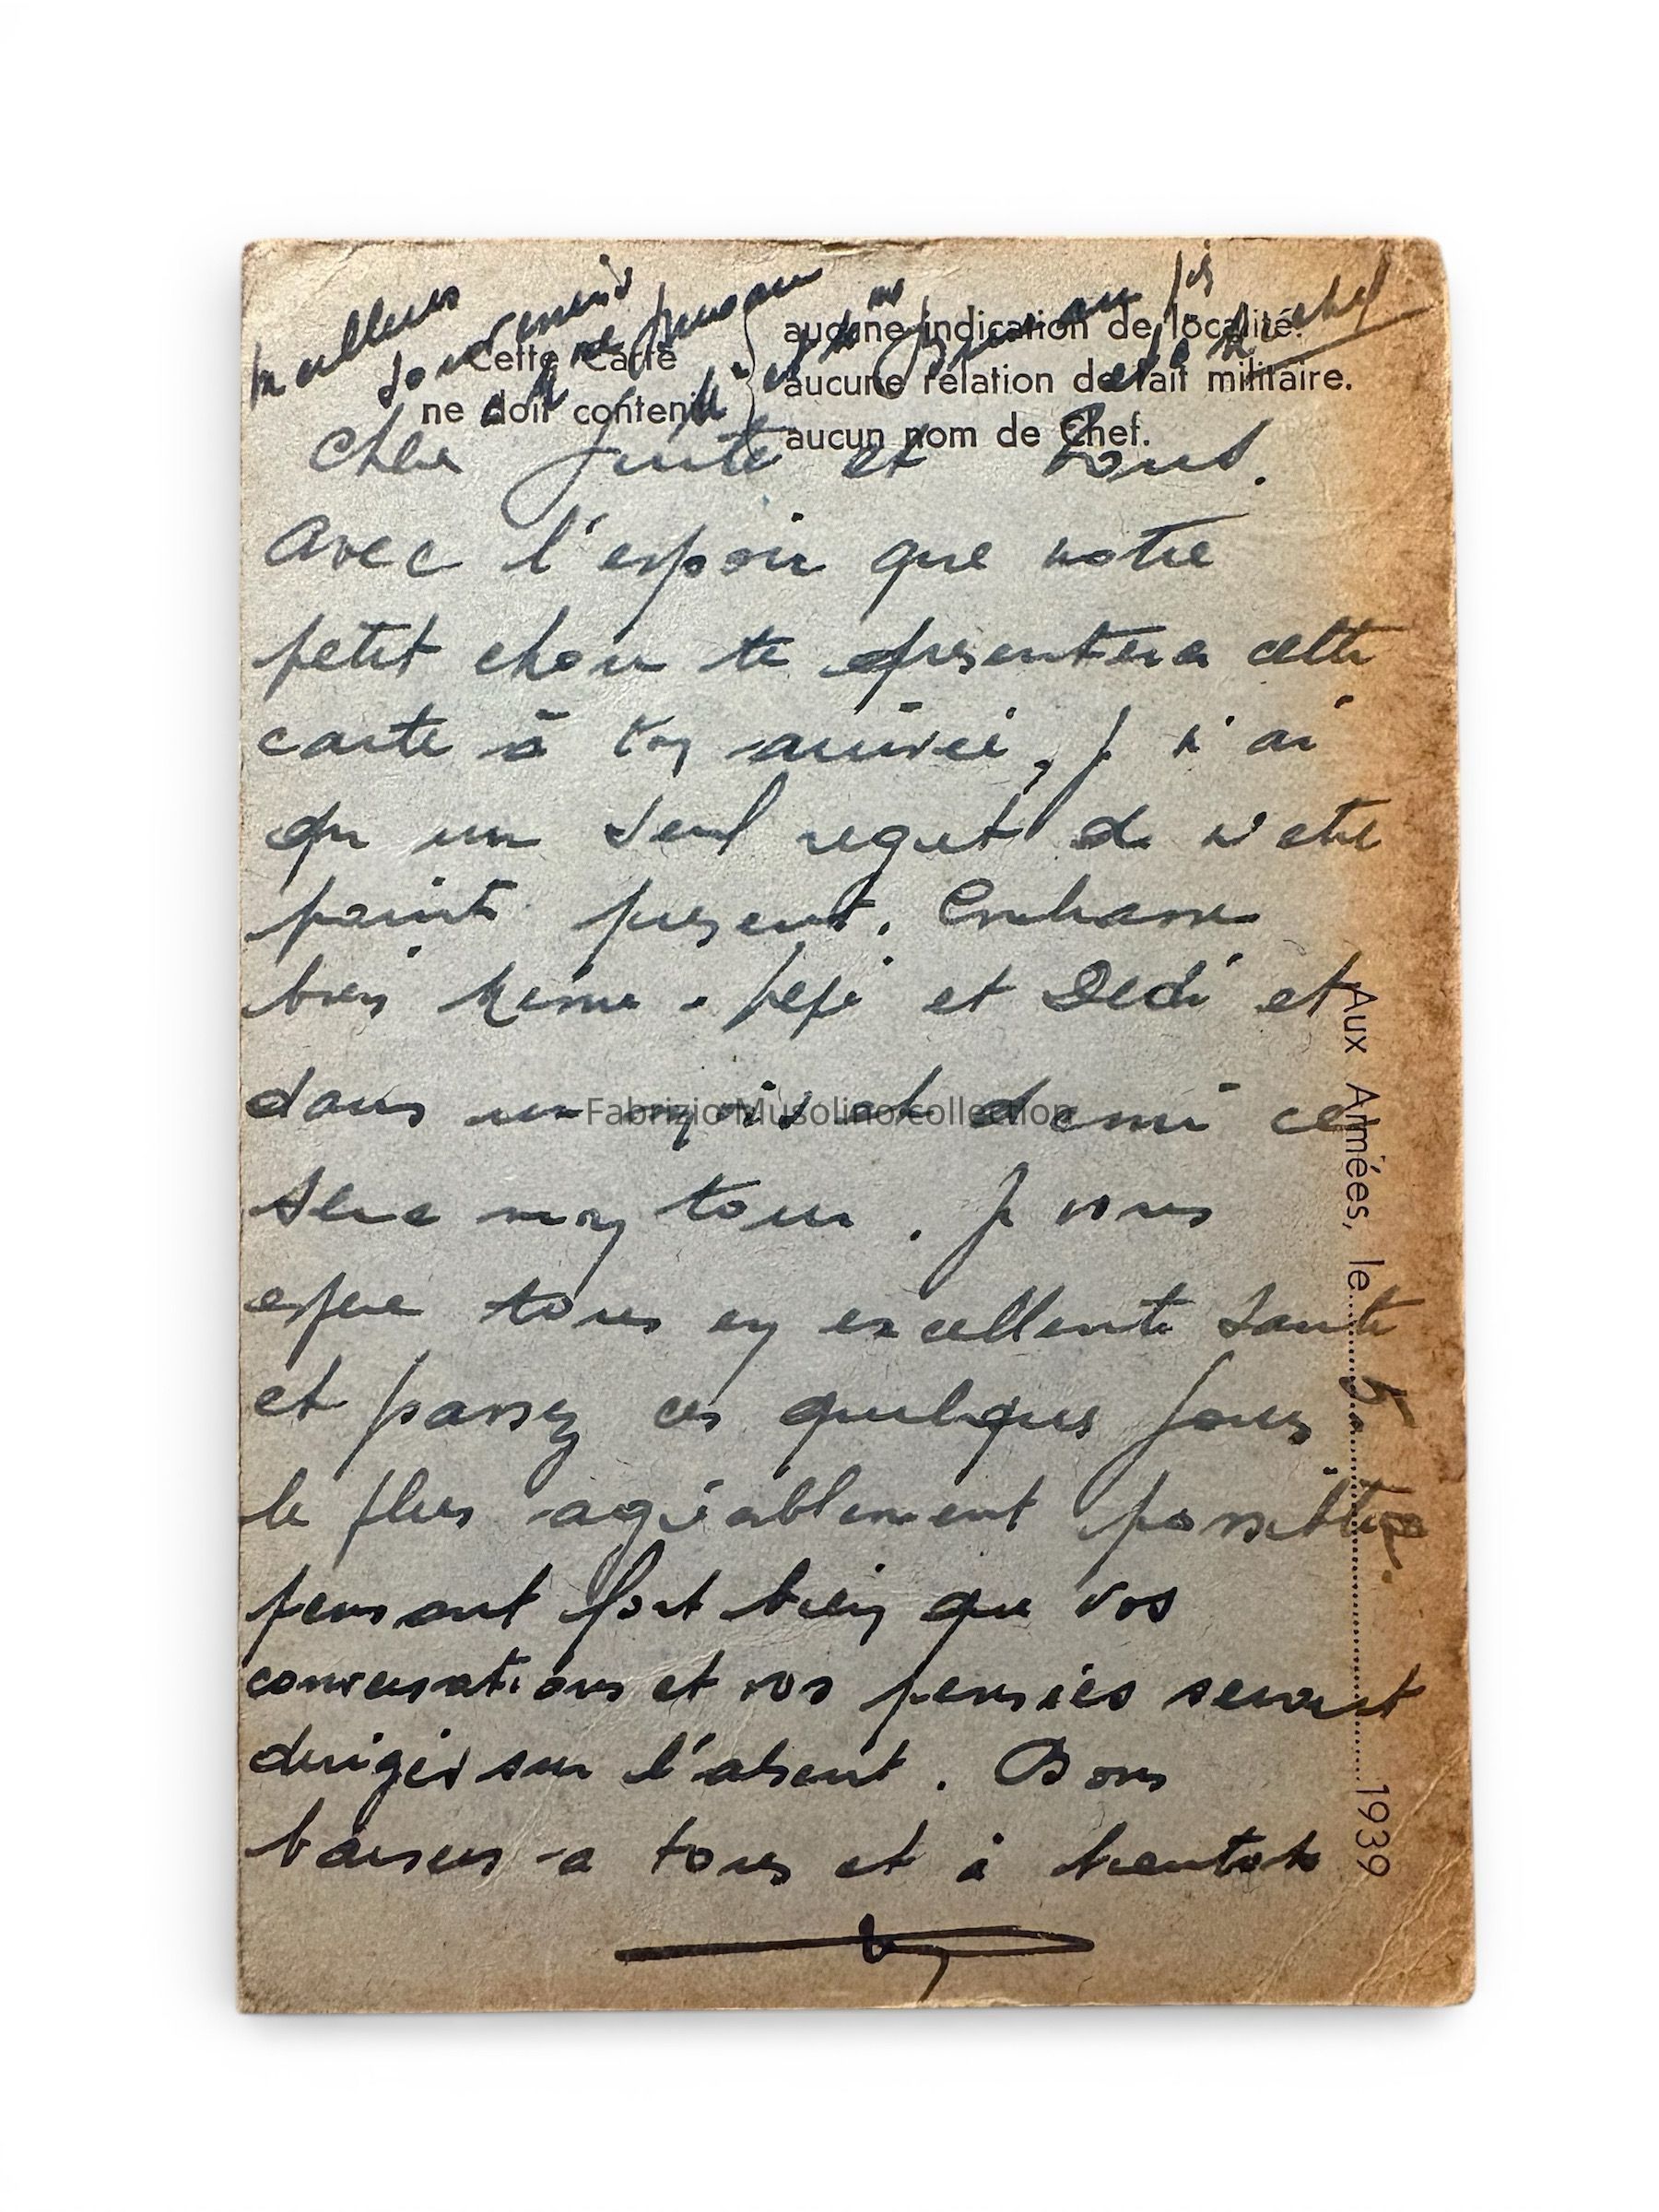 meilleurs
souvenirs
Cette Carte
ne doit contenir
aucune indication de localité.
aucune relation de fait militaire.
aucun nom de Chef.
Michel
Cher et tous.
Avec l'espoir que notre
petit chou te presentera cette
carte à ton arrivée, je n'ai
qu un seul regret de n'etre
point present. Embrasse
bien Mémé. pépé et Dédé et
dans un mois et demi ce
sera mon tour. Je vous
espere tous en excellente santé
et passez ces quelques jours
le plus agréablement possible
pensant fort bien que vos
conversations et vos pensées seront
dirigés sur l'absent. Bons
baisers a tous et à bientot
Aux Armées, le 5. 12. 1939
Fabrizio Musolino collection